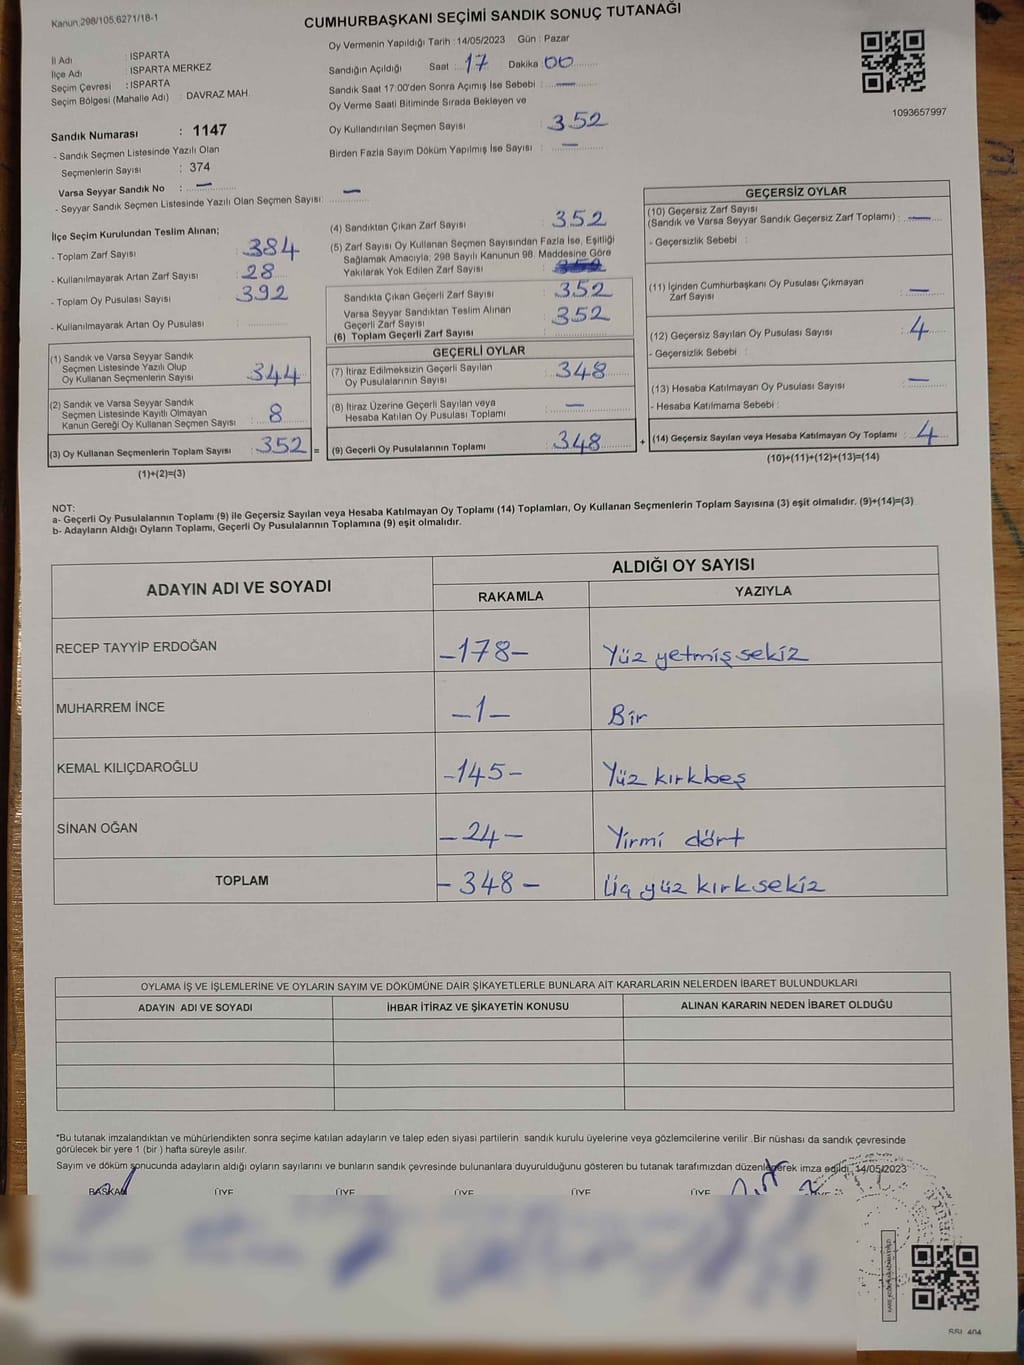 Kanun,298/105,6271/18-1
CUMHURBAŞKANI SEÇİMİ SANDIK SONUÇ TUTANAĞI
İl Adı : ISPARTA
İlçe Adı : ISPARTA MERKEZ
Seçim Çevresi : ISPARTA
Seçim Bölgesi (Mahalle Adı) : DAVRAZ MAH.
Sandık Numarası : 1147
- Sandık Seçmen Listesinde Yazılı Olan
Seçmenlerin Sayısı : 374
Varsa Seyyar Sandık No : —
- Seyyar Sandık Seçmen Listesinde Yazılı Olan Seçmen Sayısı: —
Oy Vermenin Yapıldığı Tarih :14/05/2023 Gün : Pazar
Sandığın Açıldığı Saat : 17 Dakika : 00
Sandık Saat 17:00'den Sonra Açımış İse Sebebi : —
Oy Verme Saati Bitiminde Sırada Bekleyen ve
Oy Kullandırılan Seçmen Sayısı : 352
Birden Fazla Sayım Döküm Yapılmış İse Sayısı : —
1093657997
İlçe Seçim Kurulundan Teslim Alınan;
- Toplam Zarf Sayısı : 384
- Kullanılmayarak Artan Zarf Sayısı : 28
- Toplam Oy Pusulası Sayısı : 392
- Kullanılmayarak Artan Oy Pusulası :
(1) Sandık ve Varsa Seyyar Sandık
Seçmen Listesinde Yazılı Olup
Oy Kullanan Seçmenlerin Sayısı : 344
(2) Sandık ve Varsa Seyyar Sandık
Seçmen Listesinde Kayıtlı Olmayan
Kanun Gereği Oy Kullanan Seçmen Sayısı : 8
(3) Oy Kullanan Seçmenlerin Toplam Sayısı : 352 =
(1)+(2)=(3)
(4) Sandıktan Çıkan Zarf Sayısı : 352
(5) Zarf Sayısı Oy Kullanan Seçmen Sayısından Fazla İse, Eşitliği
Sağlamak Amacıyla; 298 Sayılı Kanunun 98. Maddesine Göre
Yakılarak Yok Edilen Zarf Sayısı :
Sandıkta Çıkan Geçerli Zarf Sayısı : 352
Varsa Seyyar Sandıktan Teslim Alınan
Geçerli Zarf Sayısı : 352
(6) Toplam Geçerli Zarf Sayısı :
GEÇERLİ OYLAR
(7) İtiraz Edilmeksizin Geçerli Sayılan
Oy Pusulalarının Sayısı : 348
(8) İtiraz Üzerine Geçerli Sayılan veya
Hesaba Katılan Oy Pusulası Toplamı : —
(9) Geçerli Oy Pusulalarının Toplamı : 348 +
GEÇERSİZ OYLAR
(10) Geçersiz Zarf Sayısı
(Sandık ve Varsa Seyyar Sandık Geçersiz Zarf Toplamı) : —
- Geçersizlik Sebebi :
(11) İçinden Cumhurbaşkanı Oy Pusulası Çıkmayan
Zarf Sayısı : —
(12) Geçersiz Sayılan Oy Pusulası Sayısı : 4
- Geçersizlik Sebebi :
(13) Hesaba Katılmayan Oy Pusulası Sayısı : —
- Hesaba Katılmama Sebebi :
(14) Geçersiz Sayılan veya Hesaba Katılmayan Oy Toplamı : 4
(10)+(11)+(12)+(13)=(14)
NOT:
a- Geçerli Oy Pusulalarının Toplamı (9) ile Geçersiz Sayılan veya Hesaba Katılmayan Oy Toplamı (14) Toplamları, Oy Kullanan Seçmenlerin Toplam Sayısına (3) eşit olmalıdır. (9)+(14)=(3)
b- Adayların Aldığı Oyların Toplamı, Geçerli Oy Pusulalarının Toplamına (9) eşit olmalıdır.
ADAYIN ADI VE SOYADI ALDIĞI OY SAYISI
RAKAMLA YAZIYLA
RECEP TAYYİP ERDOĞAN -178- Yüz yetmiş sekiz
MUHARREM İNCE -1- Bir
KEMAL KILIÇDAROĞLU -145- Yüz kırkbeş
SİNAN OĞAN -24- Yirmi dört
TOPLAM -348- Üç yüz kırksekiz
OYLAMA İŞ VE İŞLEMLERİNE VE OYLARIN SAYIM VE DÖKÜMÜNE DAİR ŞİKAYETLERLE BUNLARA AİT KARARLARIN NELERDEN İBARET BULUNDUKLARI
ADAYIN ADI VE SOYADI İHBAR İTİRAZ VE ŞİKAYETİN KONUSU ALINAN KARARIN NEDEN İBARET OLDUĞU
*Bu tutanak imzalandıktan ve mühürlendikten sonra seçime katılan adayların ve talep eden siyasi partilerin sandık kurulu üyelerine veya gözlemcilerine verilir .Bir nüshası da sandık çevresinde
görülecek bir yere 1 (bir ) hafta süreyle asılır.
Sayım ve döküm sonucunda adayların aldığı oyların sayılarını ve bunların sandık çevresinde bulunanlara duyurulduğunu gösteren bu tutanak tarafımızdan düzenlenerek imza edildi. 14/05/2023
BAŞKAN ÜYE ÜYE ÜYE ÜYE ÜYE
SSİ_404